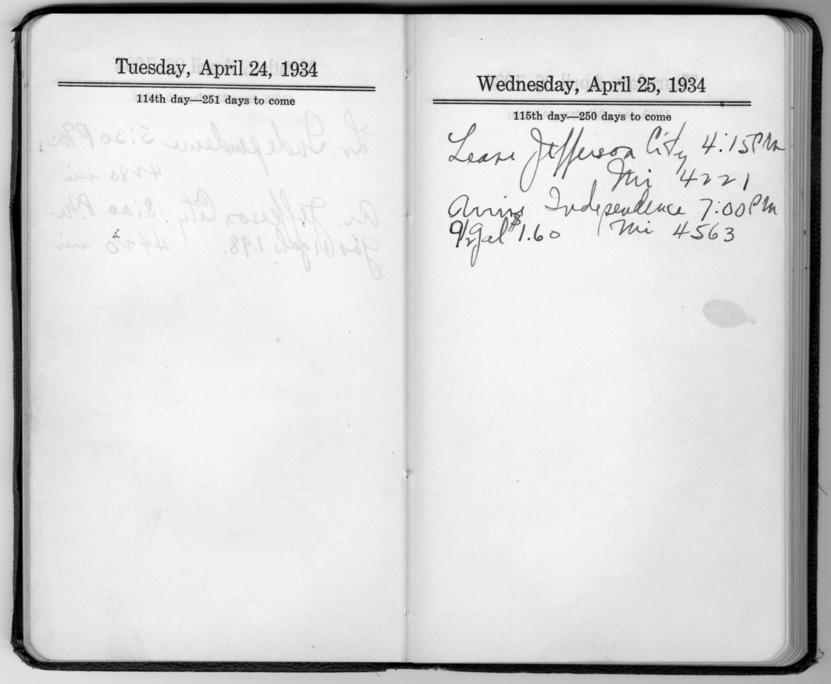 Tuesday, April 24, 1934
114th day—251 days to come
Wednesday, April 25, 1934
115th day—250 days to come
Leave Jefferson City 4:15 PM
Mi 4221
Arrive Independence 7:00 PM
9½ gal $1.60 Mi 4563